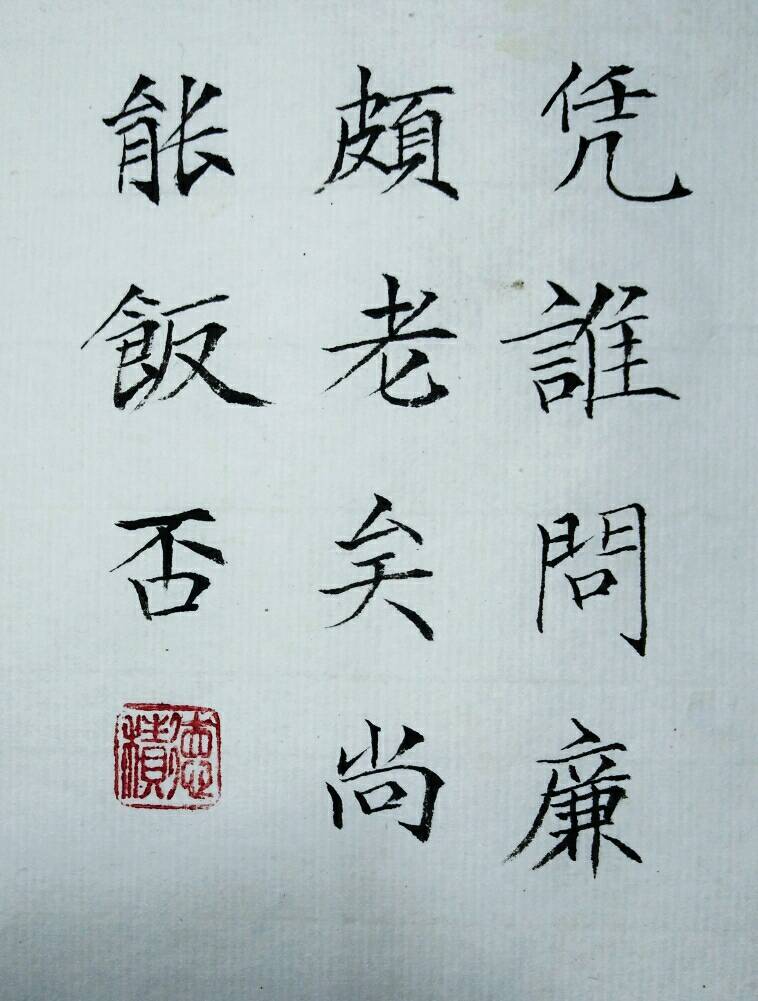 凭誰問廉
頗老矣尚
能飯否
德積